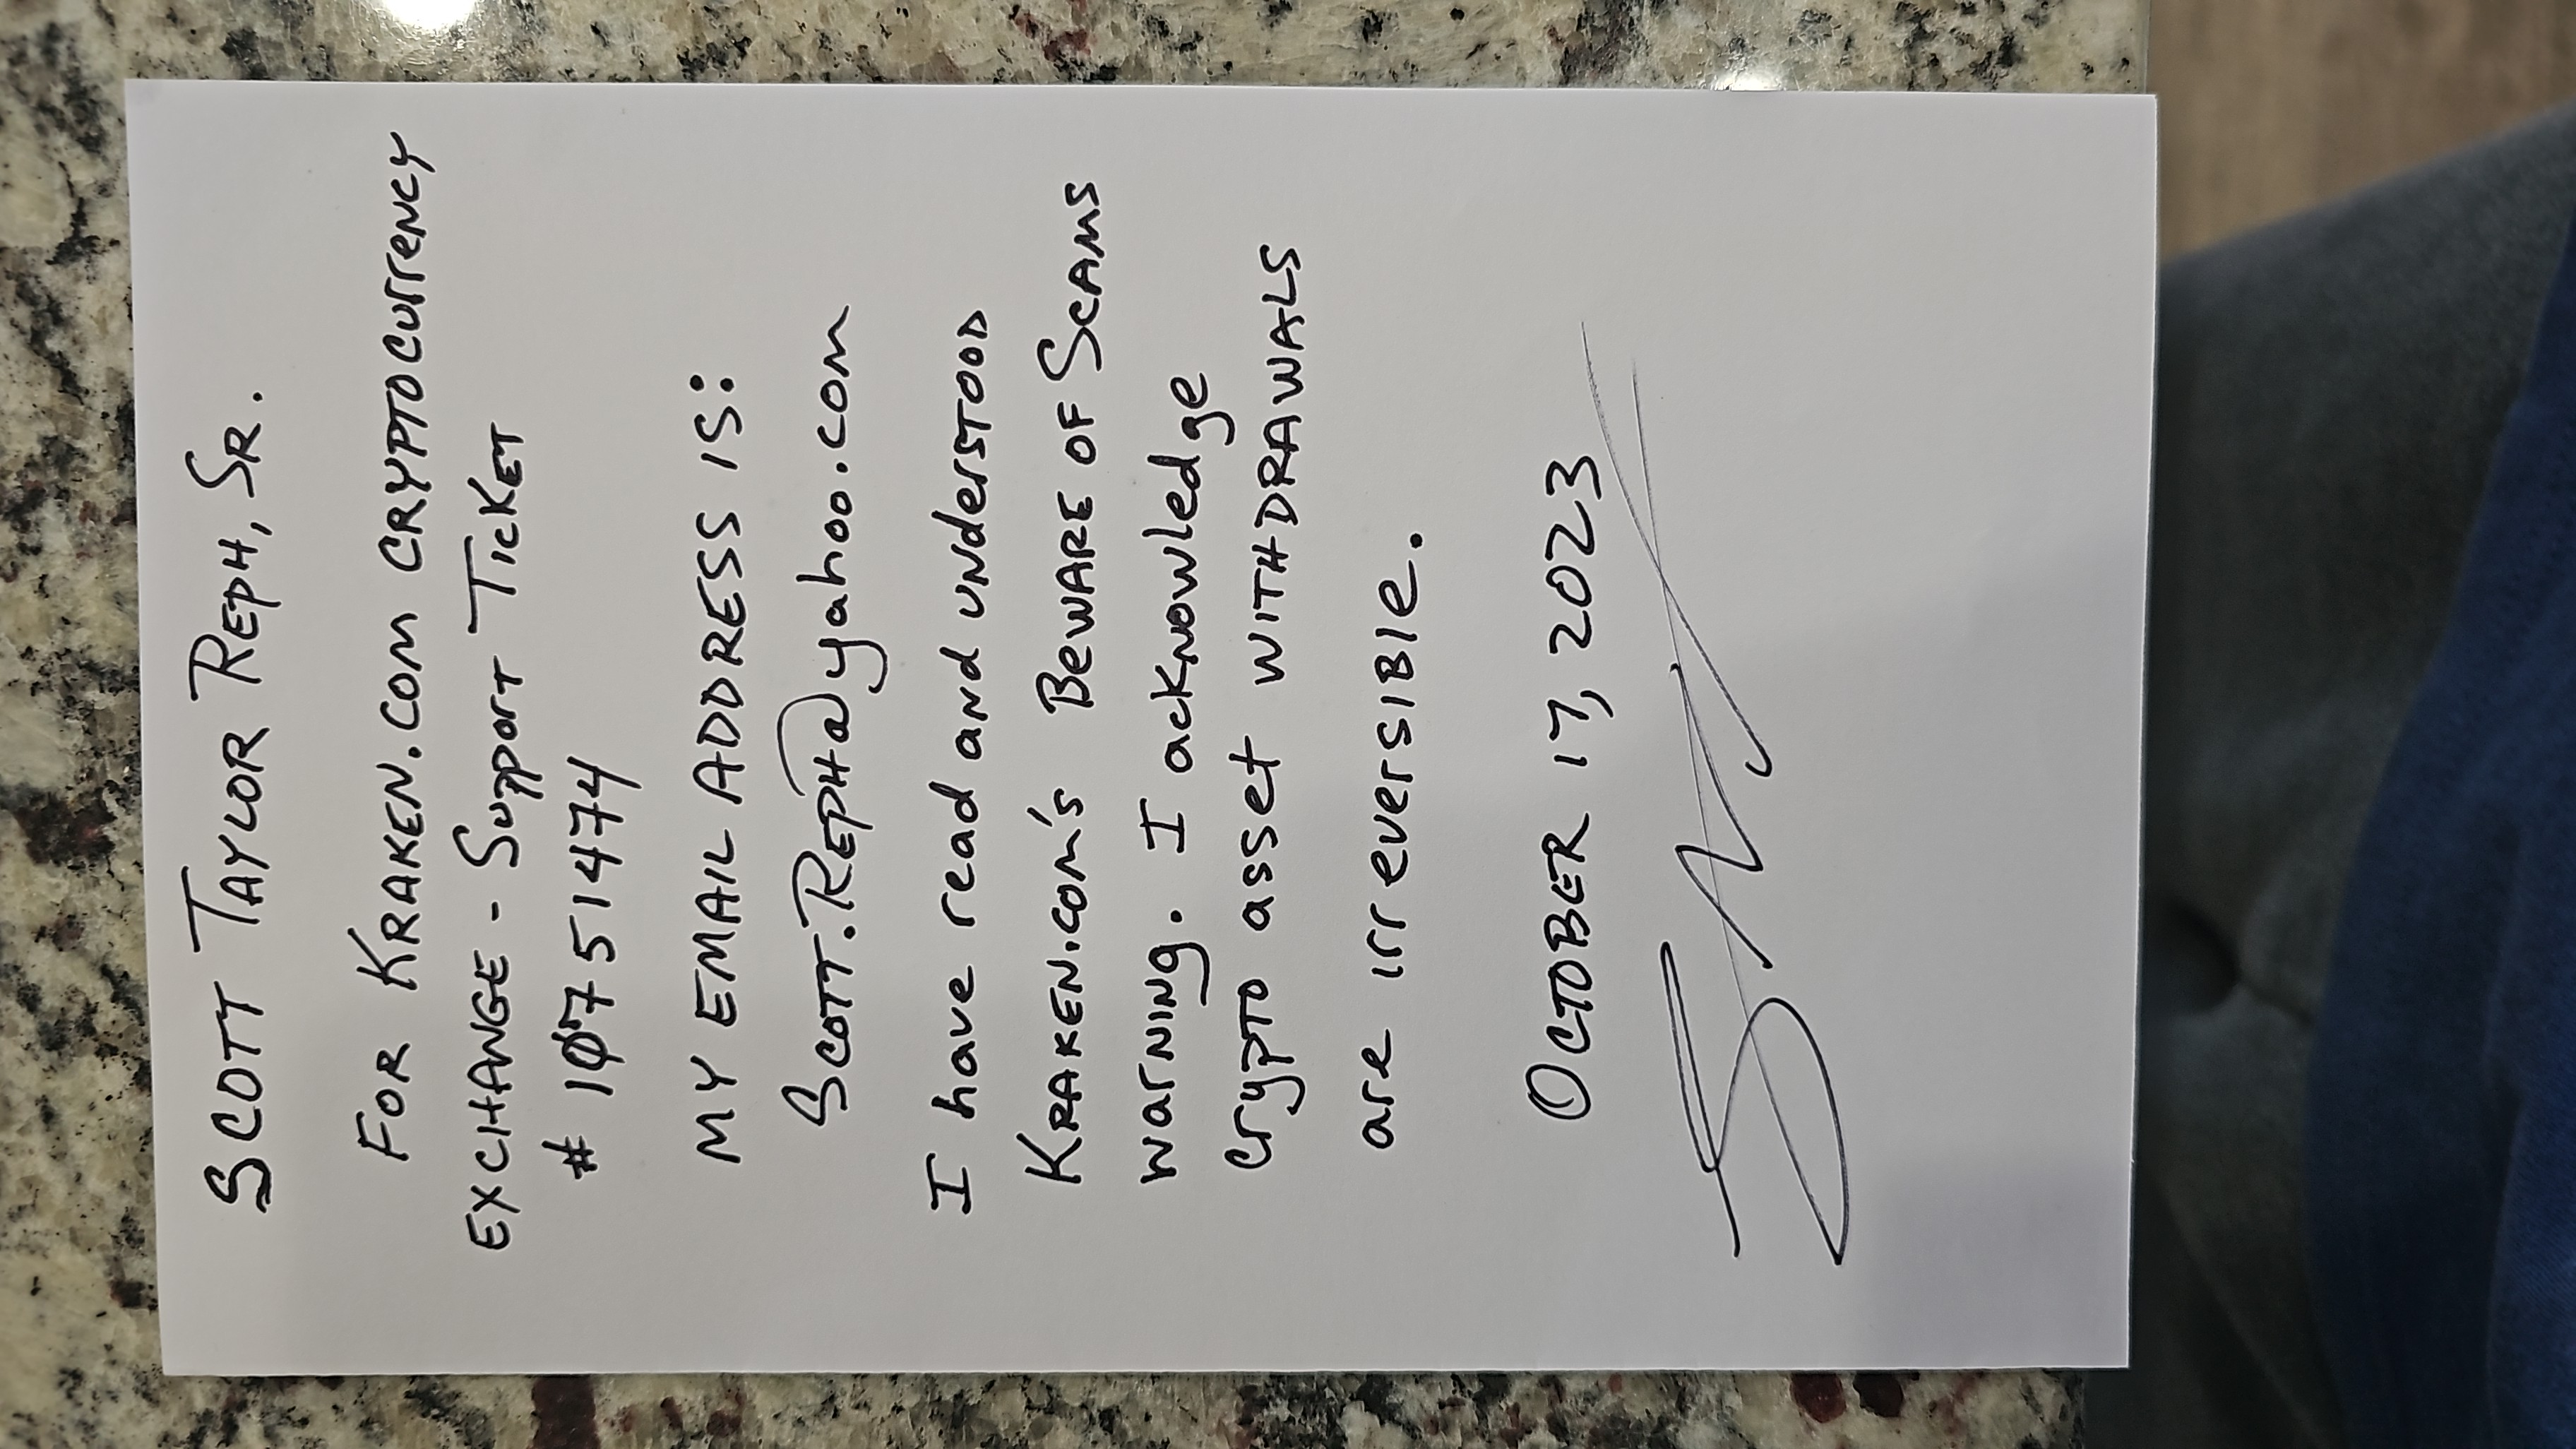 SCOTT TAYLOR REPH, SR.
FOR KRAKEN.COM CRYPTOCURRENCY
EXCHANGE - SUPPORT TICKET
# 10751474
MY EMAIL ADDRESS IS:
SCOTT.REPH@yahoo.com
I have read and understood
KRAKEN.COM's BEWARE OF SCAMS
warning. I acknowledge
Crypto asset WITHDRAWALS
are irreversible.
OCTOBER 17, 2023